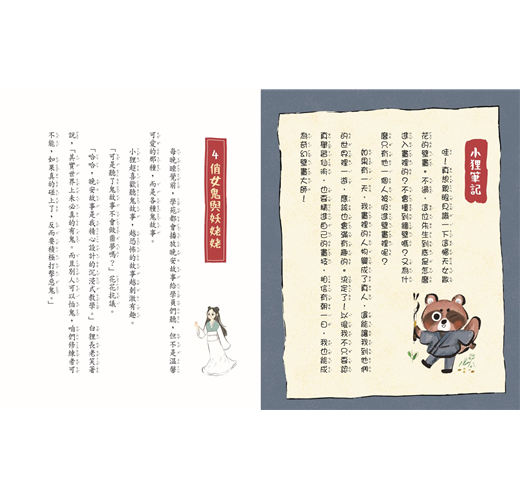 小狸筆記
哇!真想親眼見識一下這幅天女散
花的壁畫。不過,這位先生到底是怎麼
進入畫裡的?不會撞到牆壁嗎?又為什
麼只有他一個人被吸進壁畫裡呢?
如果有一天,我畫裡的人物變成了真人,還能讓我到他們
的世界裡一遊,應該也會滿有趣的。決定了!以後我不只要認
真學習仙術,也要精進自己的畫技,相信有朝一日,我也能成
為奇幻壁畫大師!
4 俏女鬼與妖姥姥
每晚睡覺前,學苑都會播放晚安故事給學員們聽,但不是溫馨
可愛的那種,而是各種鬼故事。
小狸超喜歡聽鬼故事,越恐怖的故事越刺激有趣。
「可是聽了鬼故事不會做噩夢嗎?」花花抗議。
「哈哈,晚安故事是我精心設計的沉浸式教學。」白狸長老笑著
說,「其實世界上未必真的有鬼。而且別人可以怕鬼,咱們修練者可
不能,如果真的碰上了,反而要積極打擊惡鬼。」